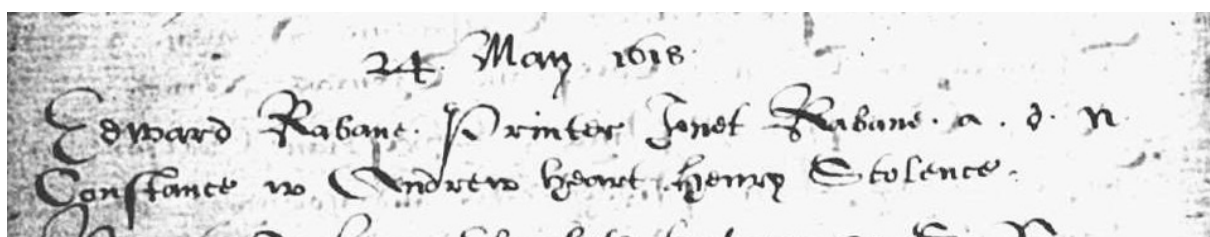 24. May. 1618.
Edward Rabane. Printer Jonet Rabane. a. d. N.
Constance w Andrew Heart. Henry Stolence.